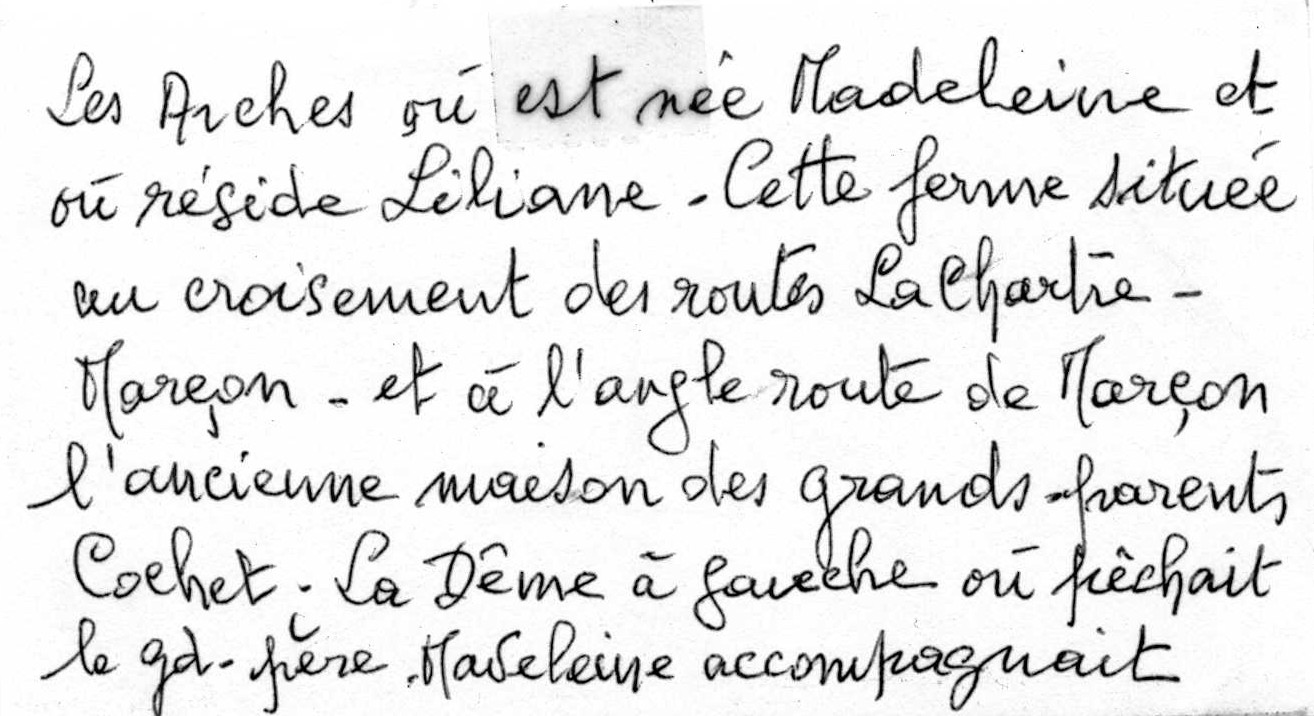 Les Arches où est née Madeleine et
où réside Liliane. Cette ferme située
au croisement des routes La Chartre -
Marçon - et à l'angle route de Marçon
l'ancienne maison des grands-parents
Cochet. La Dême à gauche où pêchait
le gd-père. Madeleine accompagnait